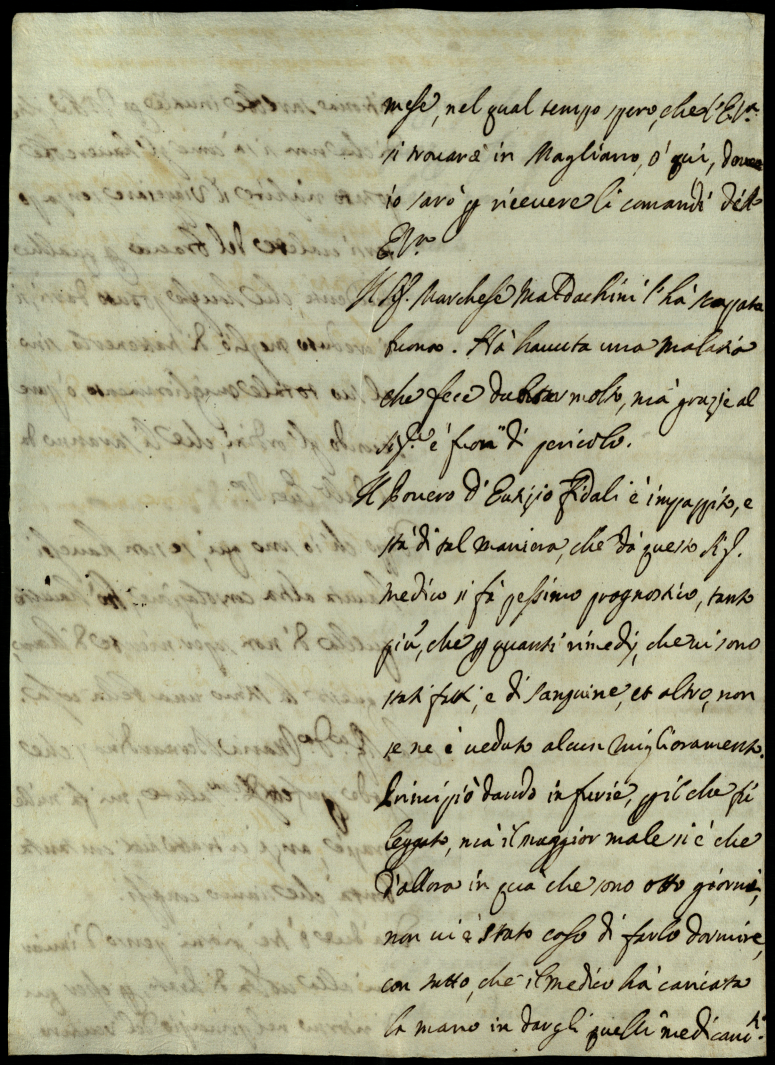 mese, nel qual tempo spero, che l'EV.ra
si trovarà in Magliano, ò quì, dove
io sarò p ricevere li comandi dell'
EV.ra
Il Sig. Marchese Maldachini l'hà scappata
buona. Hà havuta una malatia
che fece dubitar molto, mà grazie al
Sig.re è fuori di pericolo.
Il povero d'Eutizio Fidali è impazzito, e
stà di tal maniera, che dà questo Sig.
medico si fà pessimo prognostico, tanto
più, che p quanti rimedij, che vi sono
stati fatti, e di sanguine, et altro, non
se ne è veduto alcun miglioramento.
Principiò dando in furie, p il che fù
legato, mà il maggior male si è che
d'allora in quà che sono otto giorni,
non vi è stato caso di farlo dormire,
con tutto, che il medico hà caricata
la mano in dargli quelli medicam.ti